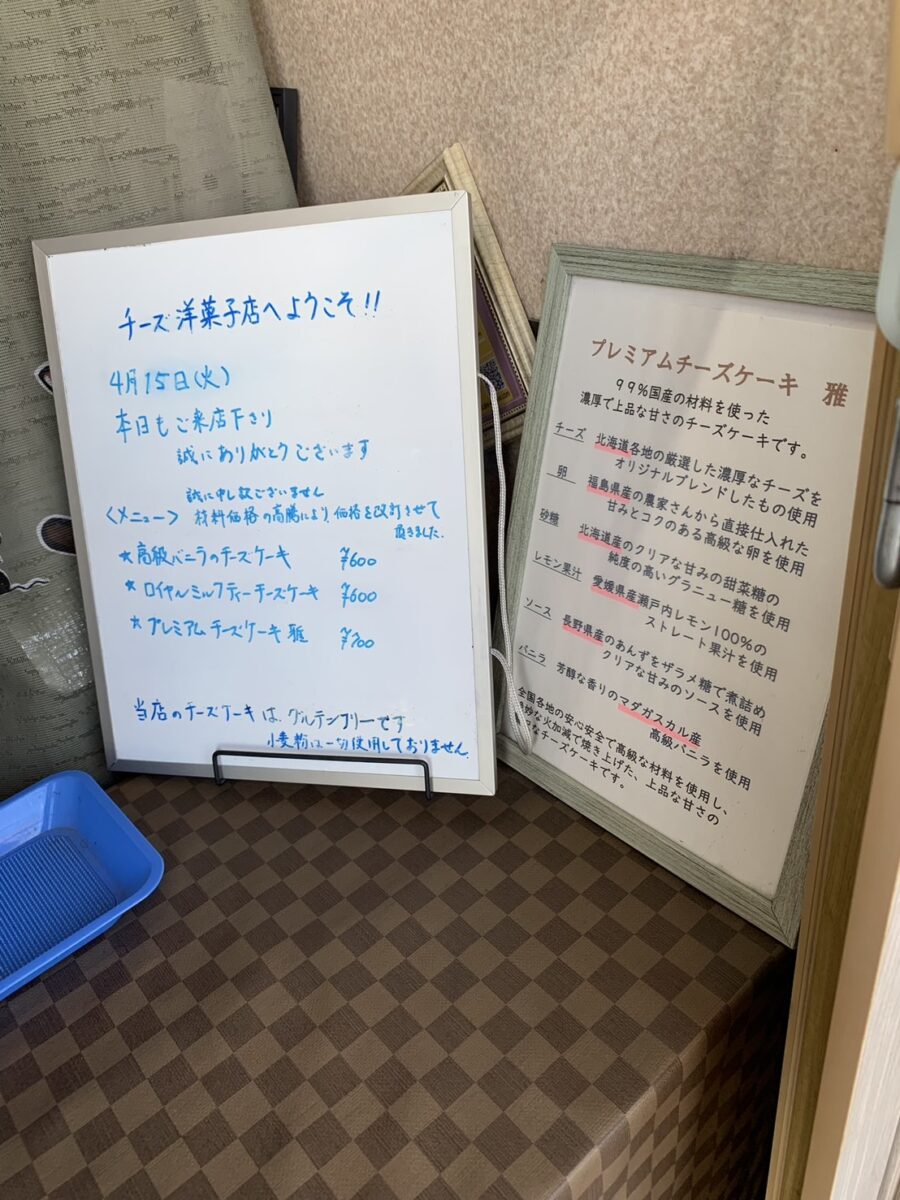 チーズ洋菓子店へようこそ!!
4月15日(火)
本日もご来店下さり
誠にありがとうございます
誠に申し訳ございません
〈メニュー〉 材料価格の高騰により、価格を改訂させて
頂きました。
★高級バニラのチーズケーキ ¥600
★ロイヤルミルクティーチーズケーキ ¥600
★プレミアムチーズケーキ 雅 ¥700
当店のチーズケーキは、グルテンフリーです
小麦粉は一切使用しておりません。
プレミアムチーズケーキ 雅
99%国産の材料を使った
濃厚で上品な甘さのチーズケーキです。
チーズ 北海道各地の厳選した濃厚なチーズを
オリジナルブレンドしたもの使用
卵 福島県産の農家さんから直接仕入れた
甘みとコクのある高級な卵を使用
砂糖 北海道産のクリアな甘みの甜菜糖の
純度の高いグラニュー糖を使用
レモン果汁 愛媛県産瀬戸内レモン100%の
ストレート果汁を使用
ソース 長野県産のあんずをザラメ糖で煮詰め
クリアな甘みのソースを使用
バニラ 芳醇な香りのマダガスカル産
高級バニラを使用
全国各地の安心安全で高級な材料を使用し、
妙な火加減で焼き上げた、上品な甘さの
なチーズケーキです。